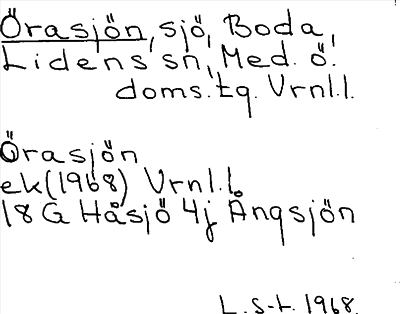 Örasjön, sjö, Boda,
Lidens sn, Med. ö.
doms.tg. Vrnl.l.
Örasjön
ek(1968) Vrnl.l.
18 G Håsjö 4j Ängsjön
L. S-t. 1968.